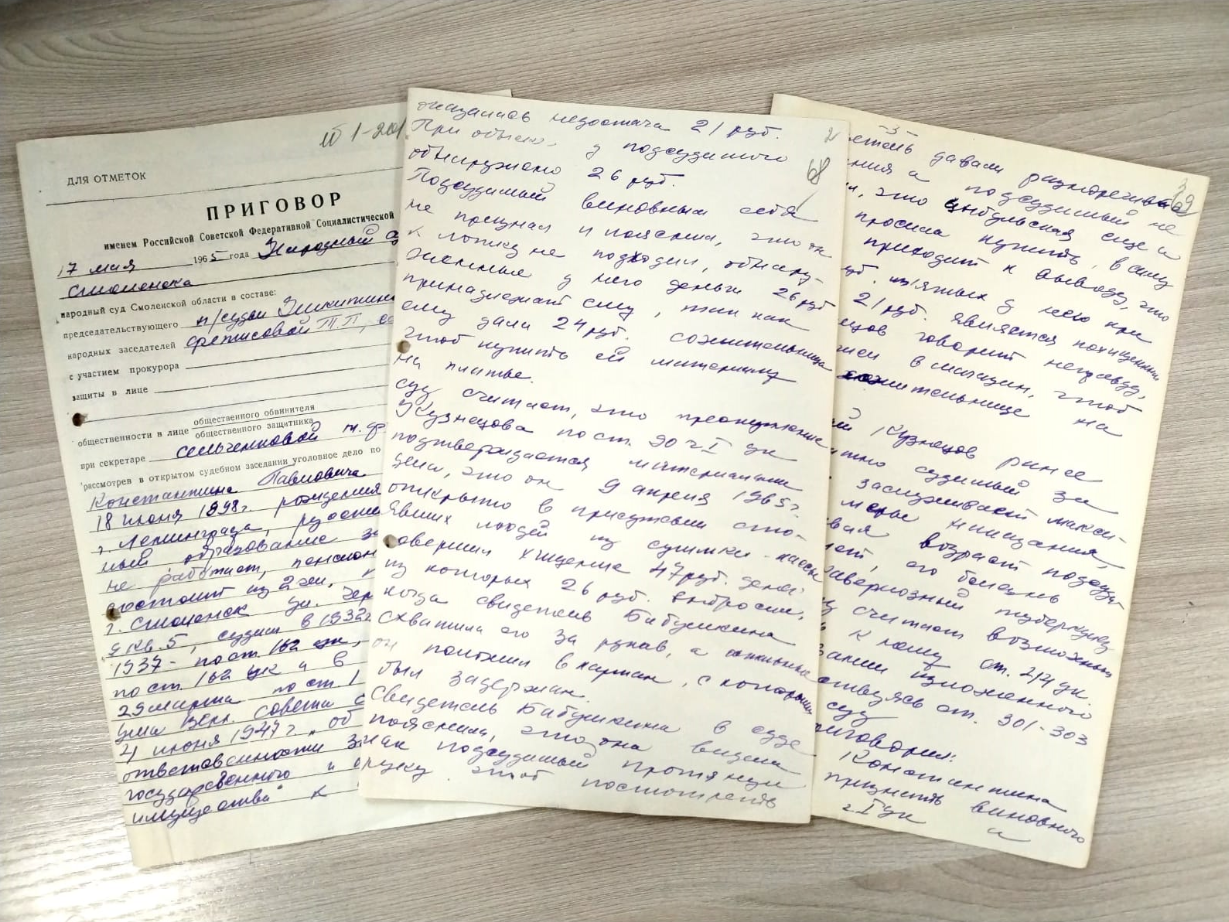 № 1-201
ДЛЯ ОТМЕТОК
ПРИГОВОР
именем Российской Советской Федеративной Социалистической
17 мая 1965 года Народный
Смоленска
народный суд Смоленской области в составе:
председательствующего н/судьи Никитина
народных заседателей
с участием прокурора
защиты в лице
общественного обвинителя
общественности в лице
общественного защитника
при секретаре
рассмотрев в открытом судебном заседании уголовное дело по
Константина Павловича
18 июня 1898 г. рождения
г. Ленинграда,
образование
не работает, пенсион
состоит из 2 чел,
г. Смоленск ул.
кв. 5, судим в 1932
1937 - по ст. 162 ук,
по ст. 162 ук и в
29 марта по ст. 1
ума Верх. Совета
4 июня 1947 г. "об
ответственности за
государственного и
имущества" к
68
оказалась недостача 21 руб.
При обыске у подсудимого
обнаружено 26 руб.
Подсудимый виновным себя
не признал и пояснил, что он
к лотку не подходил, обнару-
женные у него деньги 26 руб
принадлежат ему, так как
ему дала 24 руб. сожительница
чтоб купить ей материалу
на платье.
Суд считает, что преступление
Кузнецова по ст. 90 ч I ук
подтверждается материалами
дела, что он 9 апреля 1965 г.
открыто в присутствии сто-
явших людей из сумки-кассы
совершил хищение 47 руб. денег
из которых 26 руб. выбросил,
когда свидетель Бабушкина
схватила его за рукав, а остальные
он положил в карман, с которыми
был задержан.
Свидетель Бабушкина в суде
пояснила, что она видела
как подсудимый протянул
руку, чтоб посмотреть
-3-
69
давали разноречивые
подсудимый не
что Цыбульская еще и
просила купить, в силу
приходит к выводу, что
руб. изъятых у него при
21 руб. является похищенными
говорит неправду,
в магазин, чтоб
сожительнице на
Кузнецов ранее
судимый за
заслуживает макси-
меры наказания,
возраст подсуди
его болезнь
туберкулез
считает возможным
к нему ст. 44 ук
изложенного
ст. 301-303
суд
приговорил:
Константина
признать виновного
ч I ук и